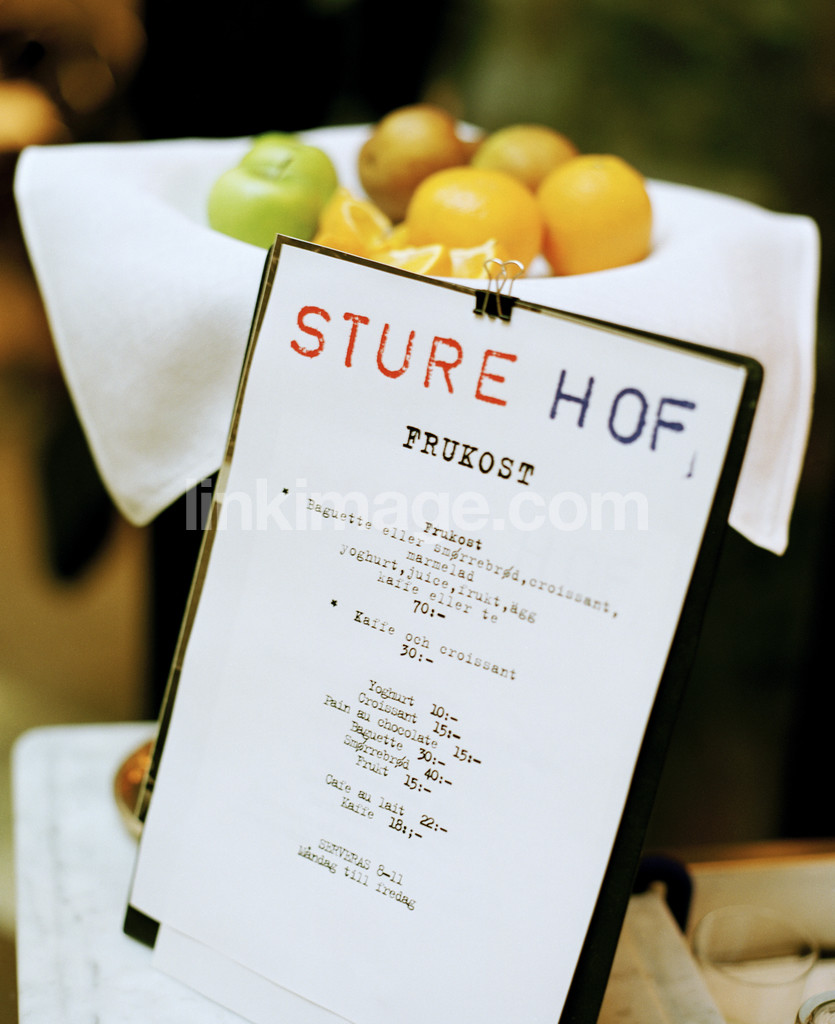 STURE HOF
FRUKOST
* Frukost
Baguette eller smørrebrød,croissant,
marmelad
yoghurt,juice,frukt,ägg
kaffe eller te
70:-
* Kaffe och croissant
30:-
Yoghurt 10:-
Croissant 15:-
Pain au chocolate 15:-
Baguette 30:-
Smørrebrød 40:-
Frukt 15:-
Cafe au lait 22:-
Kaffe 18:;-
SERVERAS 8-11
Måndag till fredag
linkimage.com